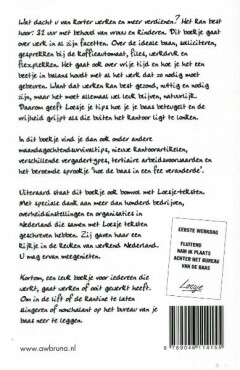 Wat dacht u van korter werken en meer verdienen? Het kan best
hoor: 32 uur met behoud van vrouw en kinderen. Dit boekje gaat
over werk in al zijn facetten. Over de ideale baan, solliciteren,
gesprekken bij de koffieautomaat, files, werkdruk en
flexplekken. Het gaat ook over vrije tijd en hoe je het een
beetje in balans houdt met al het werk dat zo nodig moet
gebeuren. Want dat werken kan best gezond, nuttig en nodig
zijn, maar het moet allemaal wel leuk blijven, natuurlijk.
Daarom geeft Loesje je tips hoe je je baas beteugelt en de
vrijheid grijpt die buiten het kantoor ligt te lonken.
In dit boekje vind je dan ook onder andere
maandagochtendsurvivaltips, nieuwe kantoorartikelen,
verschillende vergadertypes, tertiaire arbeidsvoorwaarden en
het beroemde sprookje 'hoe de baas in een fee veranderde'.
Uiteraard staat dit boekje ook bomvol met Loesje-teksten.
Met speciale dank aan meer dan honderd bedrijven,
overheidsinstellingen en organisaties in
Nederland die samen met Loesje teksten
geschreven hebben. Zij gaven haar een
kijkje in de keuken van werkend Nederland.
U mag ervan meegenieten.
Kortom, een leuk boekje voor iedereen die
werkt, gaat werken of ooit gewerkt heeft.
Om in de lift of de kantine te laten
slingeren of nonchalant op het bureau van je
baas neer te leggen.
EERSTE WERKDAG
FLUITEND
NAM IK PLAATS
ACHTER HET BUREAU
VAN DE BAAS
Loesje
www.awbruna.nl
9 789046 114155